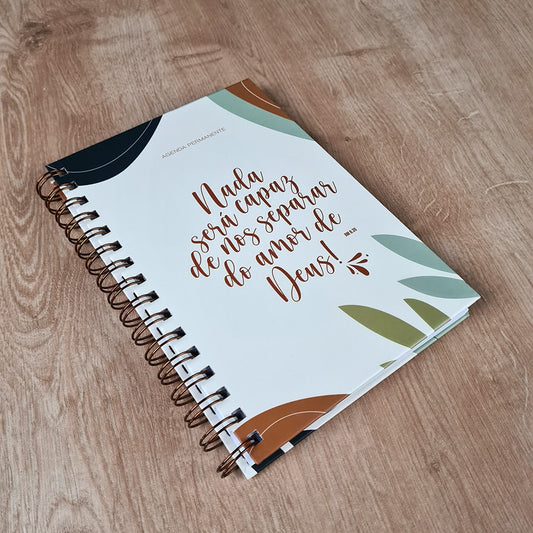 AGENDA PERMANENTE
Nada
será capaz
de nos separar
do amor de
Deus!